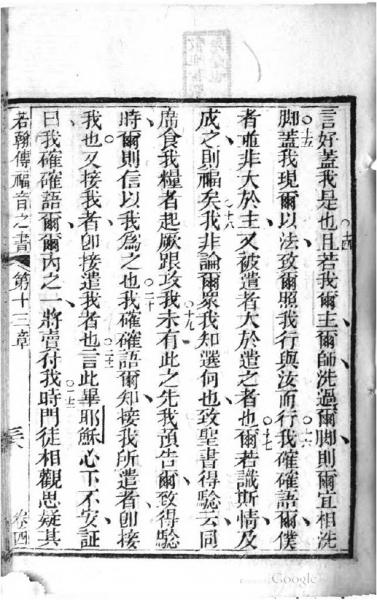 言好蓋我是也且若我爾主爾師洗過爾脚則爾宜相洗
○十四
脚蓋我現爾以法致爾照我行與汝而行我確確語爾僕
○十五
○十六
者並非大於主又被遣者大於遣之者也爾若識斯情及
○十七
成之則福矣我非論爾眾我知選何也致聖書得騐云同
○十八
席食我糧者起厥跟攻我未有此之先我預告爾致得騐
○十九
時爾則信以我為之也我確確語爾知接我所遣者卽接
○二十
我也又接我者卽接遣我者也言此畢耶穌心下不安証
○二一
曰我確確語爾爾內之一將賣付我時門徒相觀思疑其
○二二
若翰傳福音之書 第十三章 卷四
Google